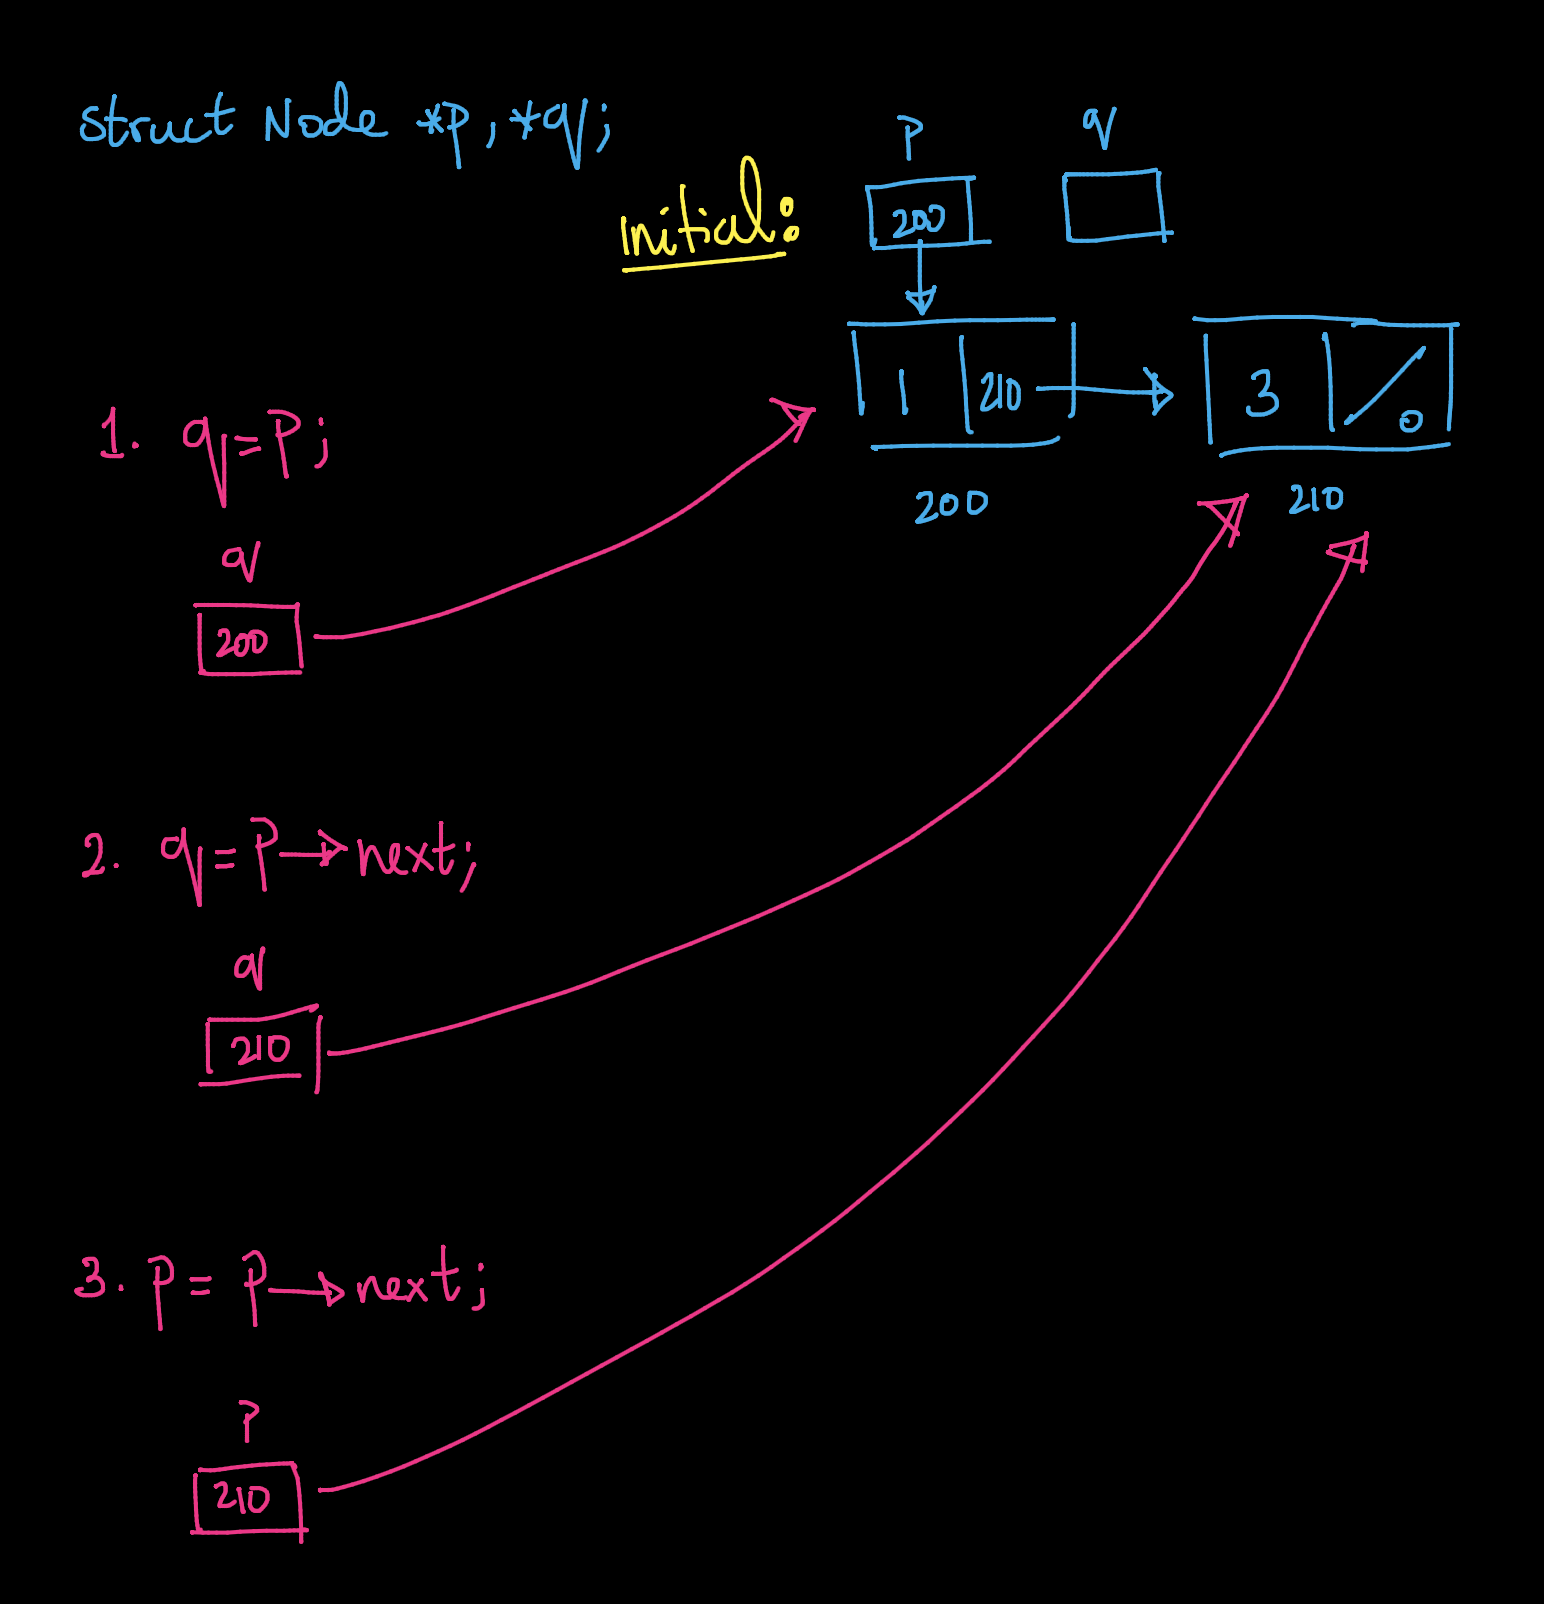 struct Node *p, *q;
initial:
p q
200
1 210 3 0
200 210
1. q=p;
q
200
2. q=p→next;
q
210
3. p= p→next;
p
210